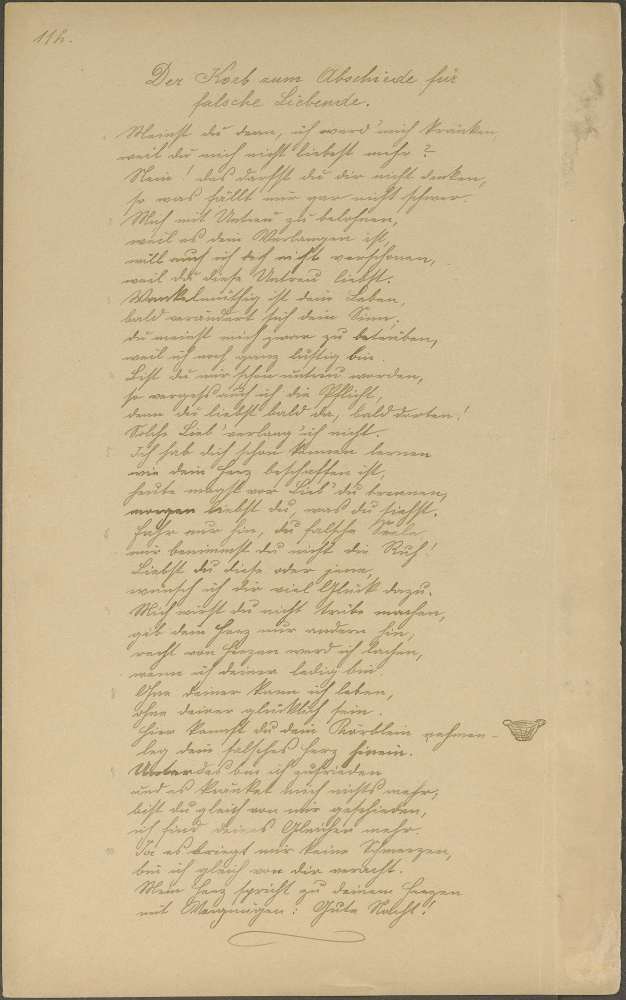 114.
Der Korb zum Abschiede für
falsche Liebende.
Meinst du denn, ich werd' mich kränken,
weil du mich nicht liebest mehr?
Nein! das darfst du dir nicht denken,
so was fällt mir gar nicht schwer.
Mich mit Untreu zu belohnen,
weil es dein Verlangen ist,
will auch ich dich nicht verschonen,
weil du diese Untreu liebst.
Wankelmüthig ist dein Leben,
bald verändert sich dein Sinn.
du meinst mich zwar zu betrüben,
weil ich noch ganz lustig bin.
Bist du mir schon untreu worden,
so vergess auch ich die Pflicht,
denn du liebst bald da, bald dorten!
Solche Lieb' verlang' ich nicht.
Ich hab dich schon kennen lernen
wie dein Herz beschaffen ist,
heute magst vor Lieb' du brennen,
morgen liebst du, was du siehst.
Fahr nur hin, du falsche Seele
mir benimmst du nicht die Ruh!
Liebst du diese oder jene,
wünsch ich dir viel Glück dazu.
Mich wirst du nicht trübe machen,
gib dein Herz nur andern hin,
recht von Herzen werd ich lachen,
wenn ich deiner ledig bin.
Ohne deiner kann ich leben,
ohne deiner glücklich sein.
Hier kannst du dein Körblein nehmen –
leg dein falsches Herz hinein.
Unterdes bin ich zufrieden
und es kränket mich nichts mehr,
bist du gleich von mir geschieden,
ich find deines Gleichen mehr.
Ja es bringt mir keine Schmerzen,
bin ich gleich von dir veracht.
Mein Herz spricht zu deinem Herzen
mit Vergnügen: Gute Nacht!